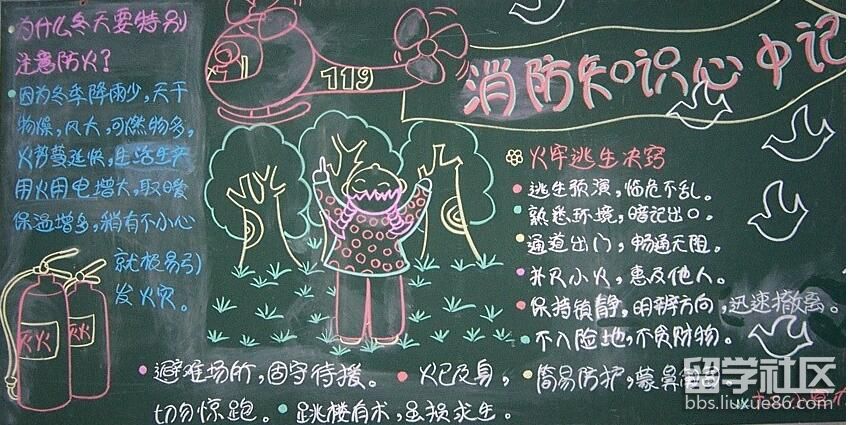 为什么冬天要特别
注意防火？
因为冬季降雨少，天干
物燥，风大，可燃物多，
火势蔓延快，生活生产
用火用电增大，取暖
保温增多，稍有不小心
就极易引
发火灾。
灭火
灭火
119
消防知识心中记
火牢逃生决窍
逃生预演，临危不乱。
熟悉环境，暗记出口。
通道出门，畅通无阻。
扑灭小火，惠及他人。
保持镇静，明辨方向，迅速撤离。
不入险地，不贪财物。
简易防护，蒙鼻
避难场所，固守待援。
火已及身，
切勿惊跑。
跳楼有术，虽损求生。
留学社区
bbs.liuxue86.com